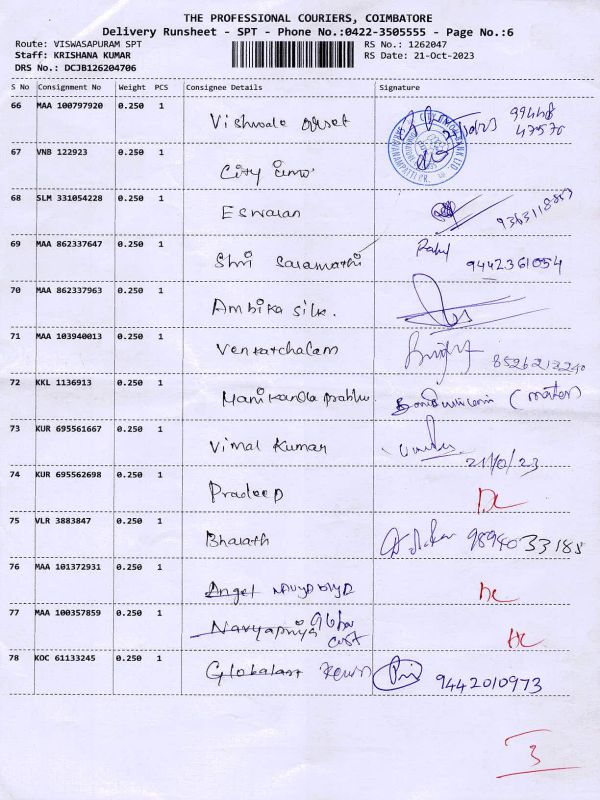 THE PROFESSIONAL COURIERS, COIMBATORE
Delivery Runsheet - SPT - Phone No.:0422-3505555 - Page No.:6
Route: VISWASAPURAM SPT RS No.: 1262047
Staff: KRISHANA KUMAR RS Date: 21-Oct-2023
DRS No.: DCJB126204706
S No Consignment No Weight PCS Consignee Details Signature
66 MAA 100797920 0.250 1
99448
47570
67 VNB 122923 0.250 1 City
68 SLM 331054228 0.250 1 Eswaran
69 MAA 862337647 0.250 1 Shri Saramathi Rahul 9442361054
70 MAA 862337963 0.250 1 Ambika silk.
71 MAA 103940013 0.250 1 Venkatchalam 8526213240
72 KKL 1136913 0.250 1 Manikanda prabhu
73 KUR 695561667 0.250 1 Vimal Kumar
74 KUR 695562698 0.250 1 Pradeep
75 VLR 3883847 0.250 1 Bharath 9894033185
76 MAA 101372931 0.250 1 Angel
77 MAA 100357859 0.250 1 Navyapriya
78 KOC 61133245 0.250 1 9442010973
3